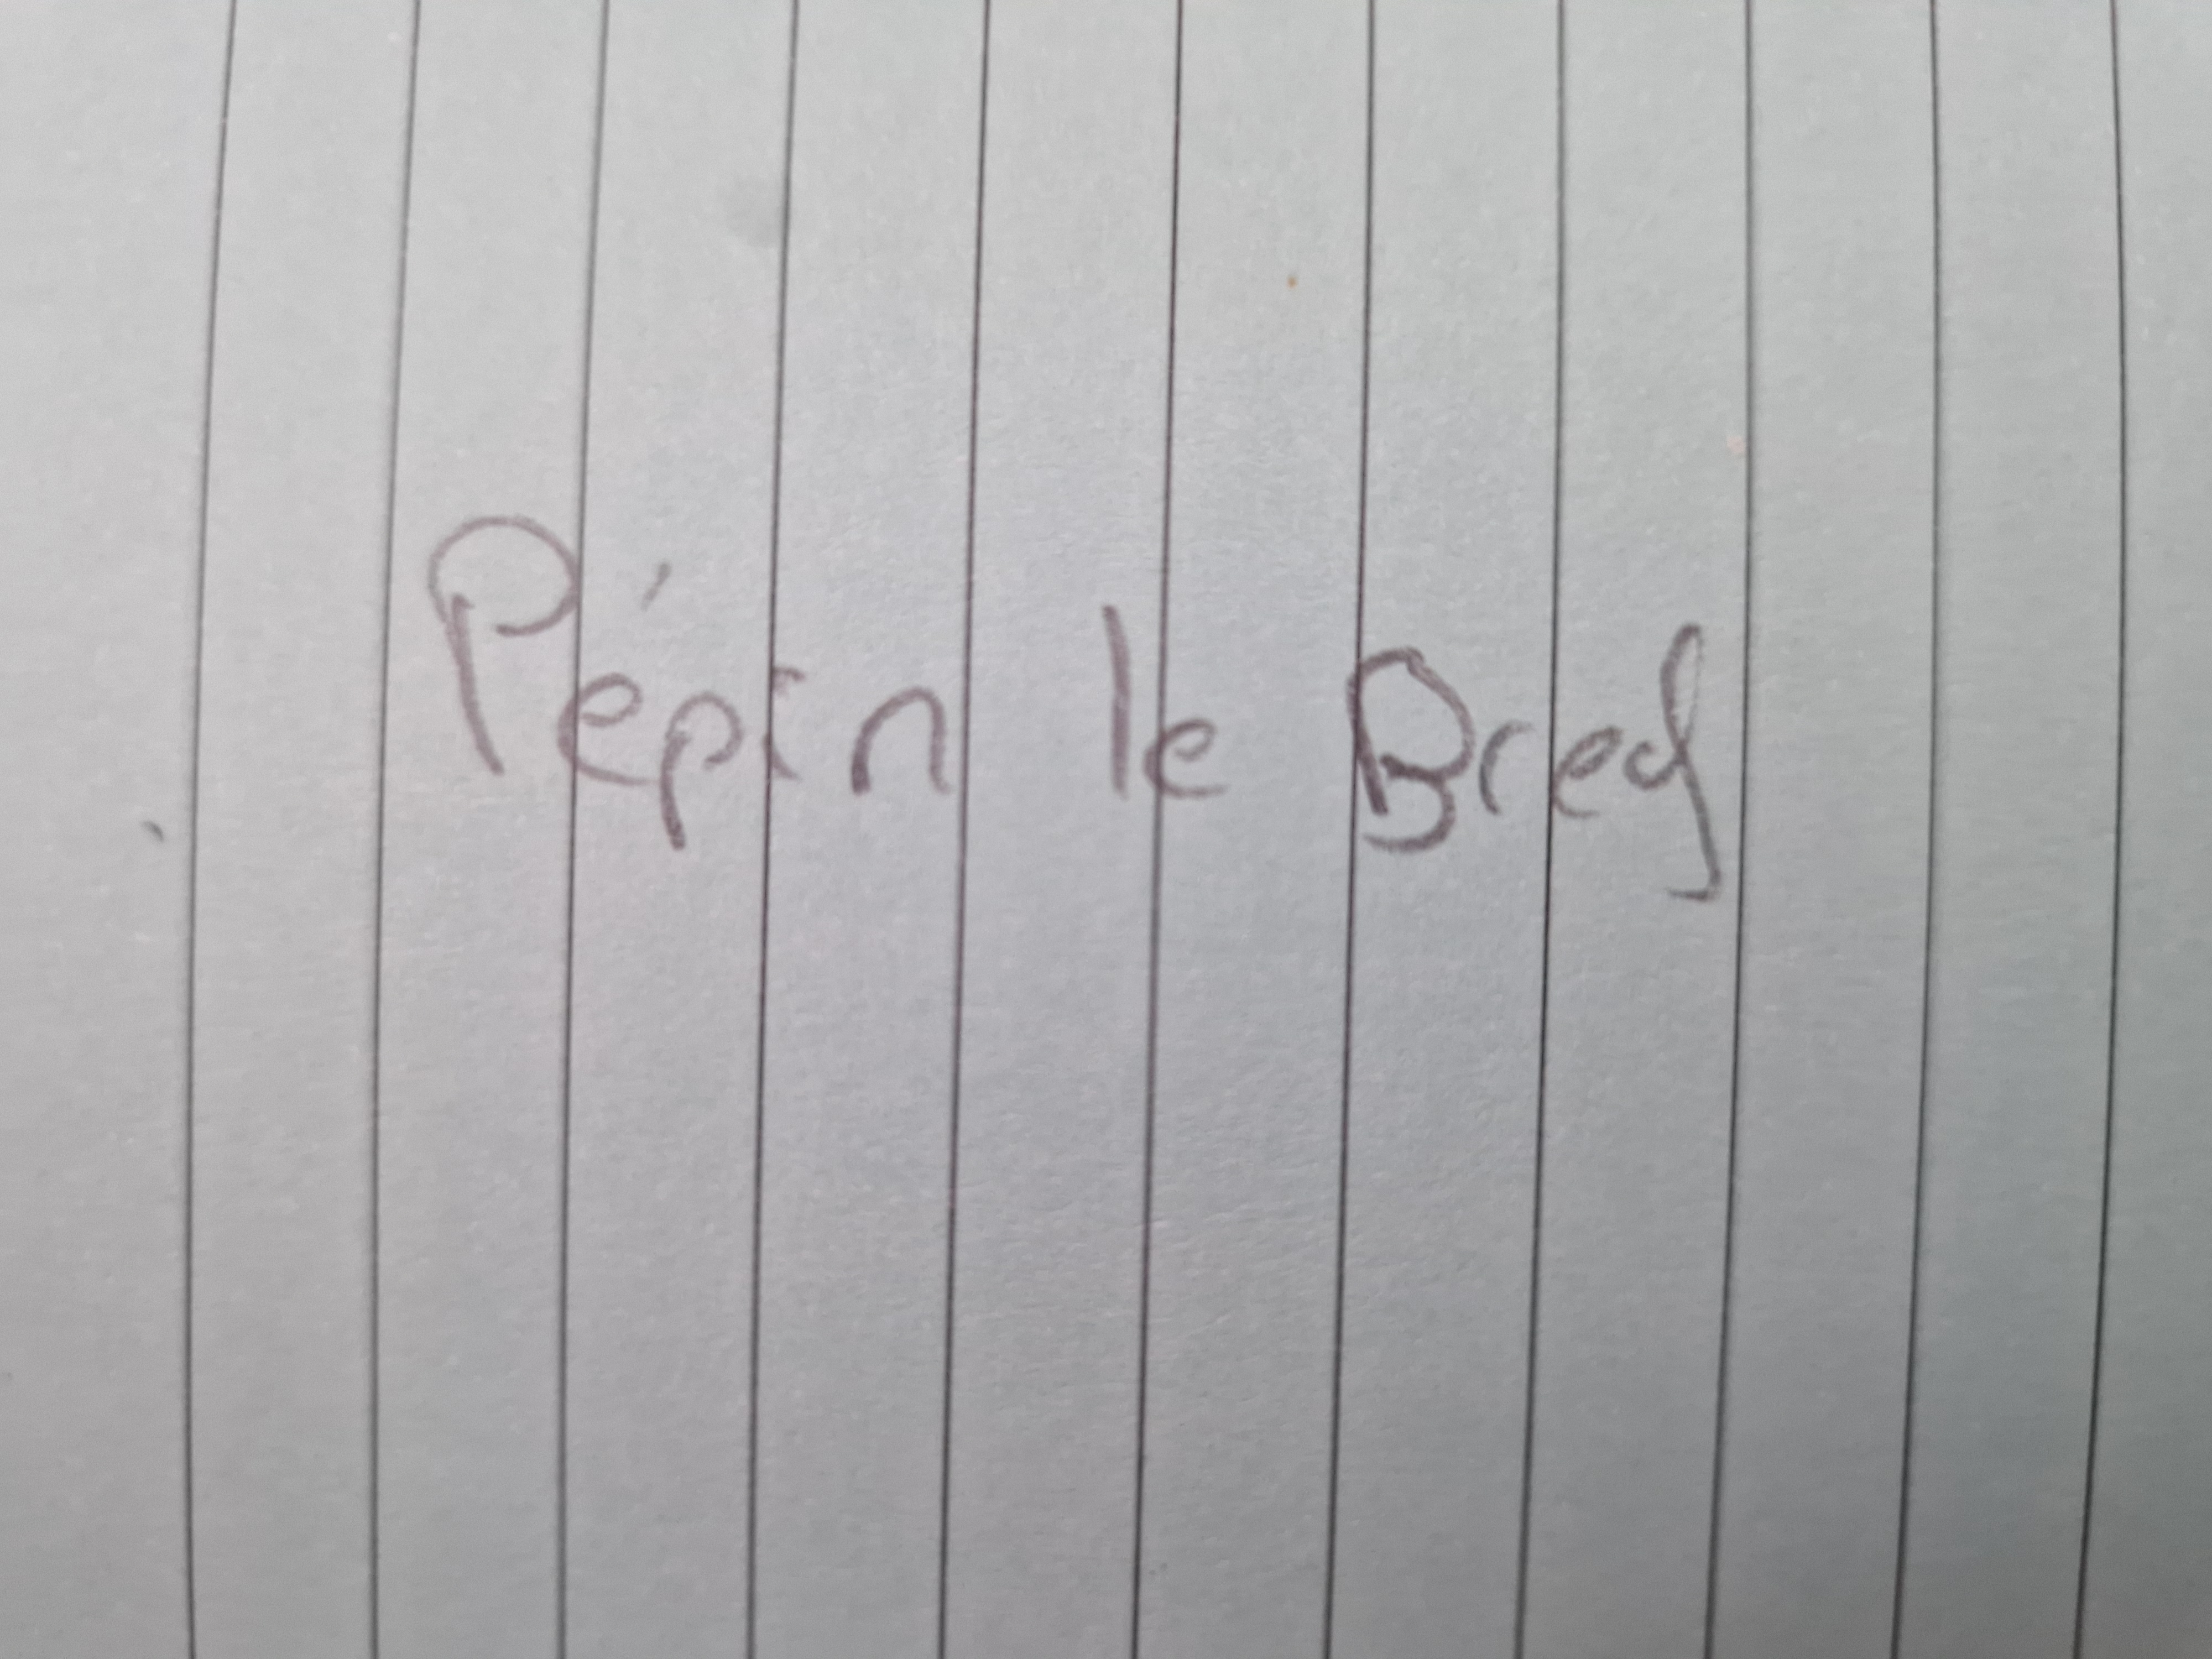 Pépin le Bref